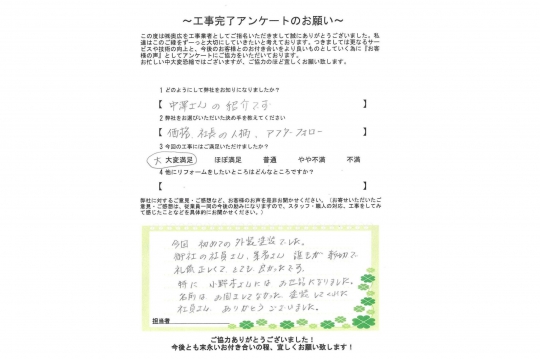 ～工事完了アンケートのお願い～
この度は
弊社
を工事業者としてご指名いただきまして誠にありがとうございました。私
達はこのご縁をずーっと大切にしていきたいと考えております。つきましては更なるサー
ビスや技術の向上と、今後のお客様とのお付き合いをより良いものとしていく為に『お客
様の声』としてアンケートにご協力をいただいております。
お忙しい中大変恐縮ではございますが、ご協力のほど宜しくお願い致します。
1 どのようにして弊社をお知りになりましたか？
【 中澤さんの紹介です 】
2 弊社をお選びいただいた決め手を教えてください
【 価格、社長の人柄、アフターフォロー 】
3 今回の工事にはご満足いただけましたか？
大 大変満足 ほぼ満足 普通 やや不満 不満
4 他にリフォームをしたいところはどんなところですか？
【 】
弊社に対するご意見・ご感想など、お客様のお声を是非お聞かせください。（お寄せいただいたご
意見・ご感想は、従業員一同の今後の励みになりますので、スタッフ・職人の対応、工事をしてみ
て感じたことなどを具体的にお聞かせください。）
今回 初めての外装塗装でした。
御社の社員さん、業者さん 誰もが親切で
礼儀正しくて、とても良かったです。
特に 小野寺さんには お世話になりました。
名前は お聞きしてなかった 塗装してくれた
社員さん ありがとうございました。
担当者
ご協力ありがとうございました！
今後とも末永いお付き合いの程、宜しくお願い致します！